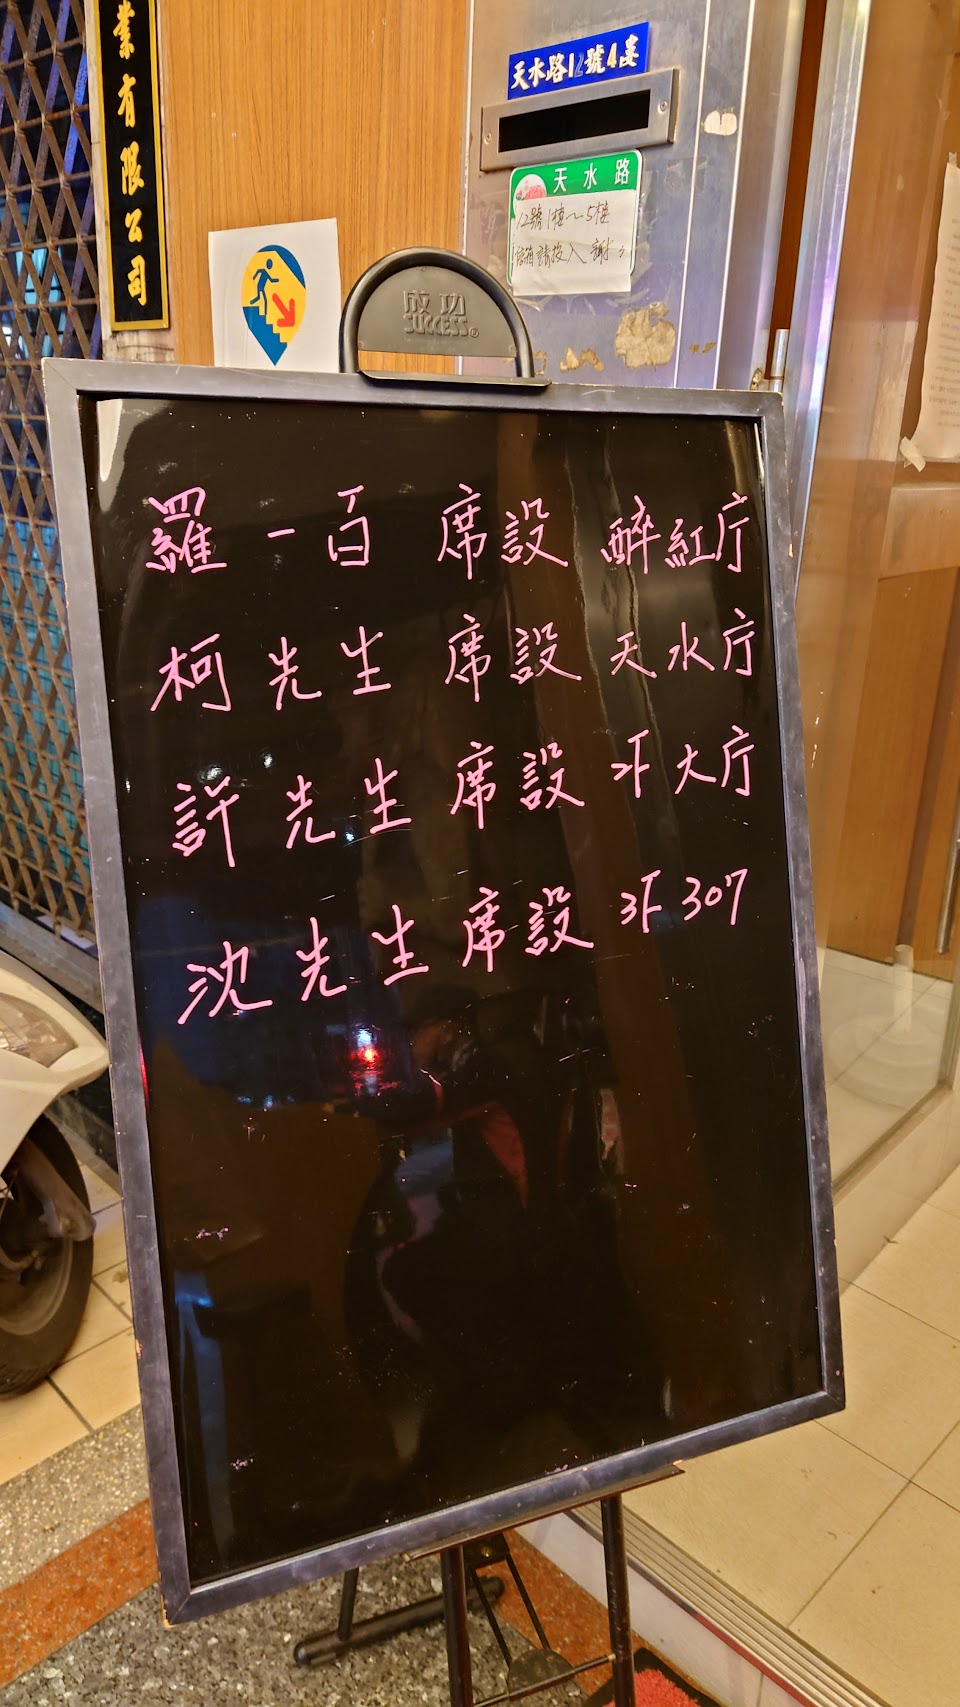 業有限公司
天水路12號4F
天水路
12號1樓~5樓
信箱請投入 謝謝
成功
SUCCESS®
羅一百 席設 醉紅庁
柯先生 席設 天水庁
許先生 席設 2F大庁
沈先生 席設 3F 307